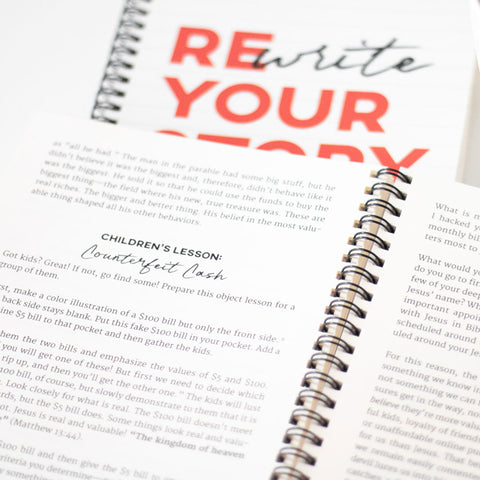 REwrite
YOUR
STORY
as "all he had." The man in the parable had some big stuff, but he
didn't believe it was the biggest and, therefore, didn't behave like it
was the biggest. He sold it so that he could use the funds to buy the
biggest thing—the field where his new, true treasure was. These are
real riches. The bigger and better thing. His belief in the most valu-
able thing shaped all his other behaviors.
CHILDREN'S LESSON:
Counterfeit Cash
Got kids? Great! If not, go find some! Prepare this object lesson for a
group of them.
st, make a color illustration of a $100 bill but only the front side.
back side stays blank. Put this fake $100 bill in your pocket. Add a
$5 bill to that pocket and then gather the kids.
em the two bills and emphasize the values of $5 and $100.
you will get one of these! But first we need to decide which
rip up, and then you'll get the other one." The kids will
00 bill, of course, but slowly demonstrate to them that it is
. Look closely for what is real. The $100 bill will just
ards, but the $5 bill does. Some things look real and valu-
ot. Jesus is real and valuable! "The kingdom of heaven
" (Matthew 13:44).
00 bill and then give the $5 bill to
criteria you determine—
What is m
I hacked y
monthly bill
ters most to
What would yo
do you go to first
few of your deep
Jesus' name?
important
with Jesus in Bib
scheduled around
uled around your Je
For this reason, the
something we know i
not something we can
sures get in the way, no
believe they're more valua
ful kids, loyalty of friends
or unaffordable online pu
for us than Jesus. That be
we remain easily content
devil lures us into